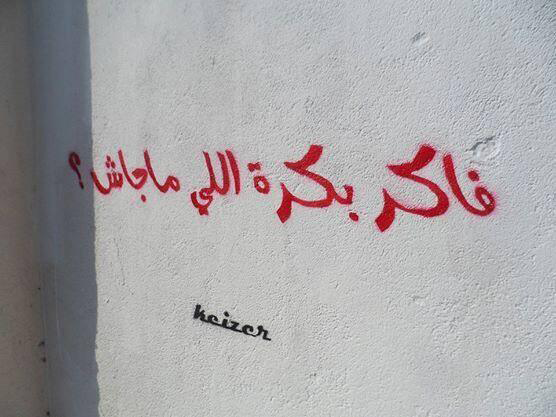 فاكر بكرة اللي ماجاش؟
keizer